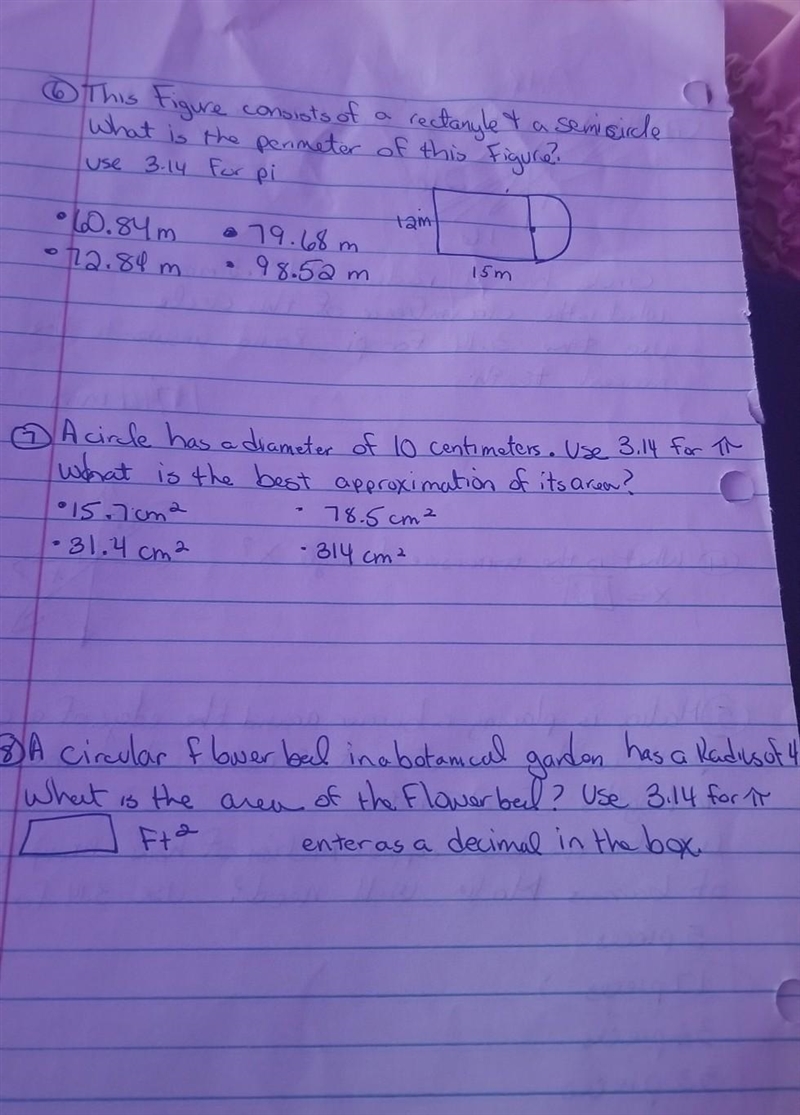 6 This Figure consists of a rectangle & a semicircle
What is the perimeter of this Figure?
Use 3.14 For pi
12m
• 60.84 m • 79.68 m
• 72.84 m • 98.52 m
15m
7 A circle has a diameter of 10 centimeters. Use 3.14 for π
What is the best approximation of its area?
• 15.7 cm² • 78.5 cm²
• 31.4 cm² • 314 cm²
8) A circular flower bed in a botanical garden has a Radius of 4
What is the area of the Flower bed? Use 3.14 for π
Ft² enter as a decimal in the box.